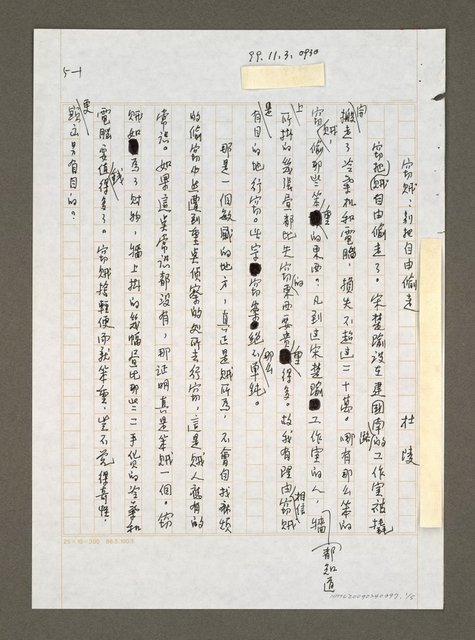 99.11.3. 0930
5-1
竊賊,別把自由偷走
杜陵
竊賊把自由偷走了。宋楚瑜設在建國南路的工作室被撬
搬走了冷氣機和電腦,損失不超過二十萬。哪有那麼笨的
竊賊,偷那些笨重的東西。凡到過宋楚瑜工作室的人,都知道牆
上所掛的幾張畫都比失竊的東西要貴重得多。故我有理由相信竊賊
是有目的地行竊。此宗竊案絕不單純。
那是一個敏感的地方,真正是賊所為,不會自找麻煩
的偷竊必然遭到重案偵察的処所去行竊,這是賊人應有的
常識。如果這点常識都沒有,那証明真是笨賊一個。竊
賊如為了財物,牆上掛的幾幅畫比那些二手貨的冷氣和
電腦要值錢得多了。竊賊捨輕便而就笨重,豈不覺得奇怪,
更顯示另有目的。
25×12=300 86.5.100本
NMTL20090240097.1/5